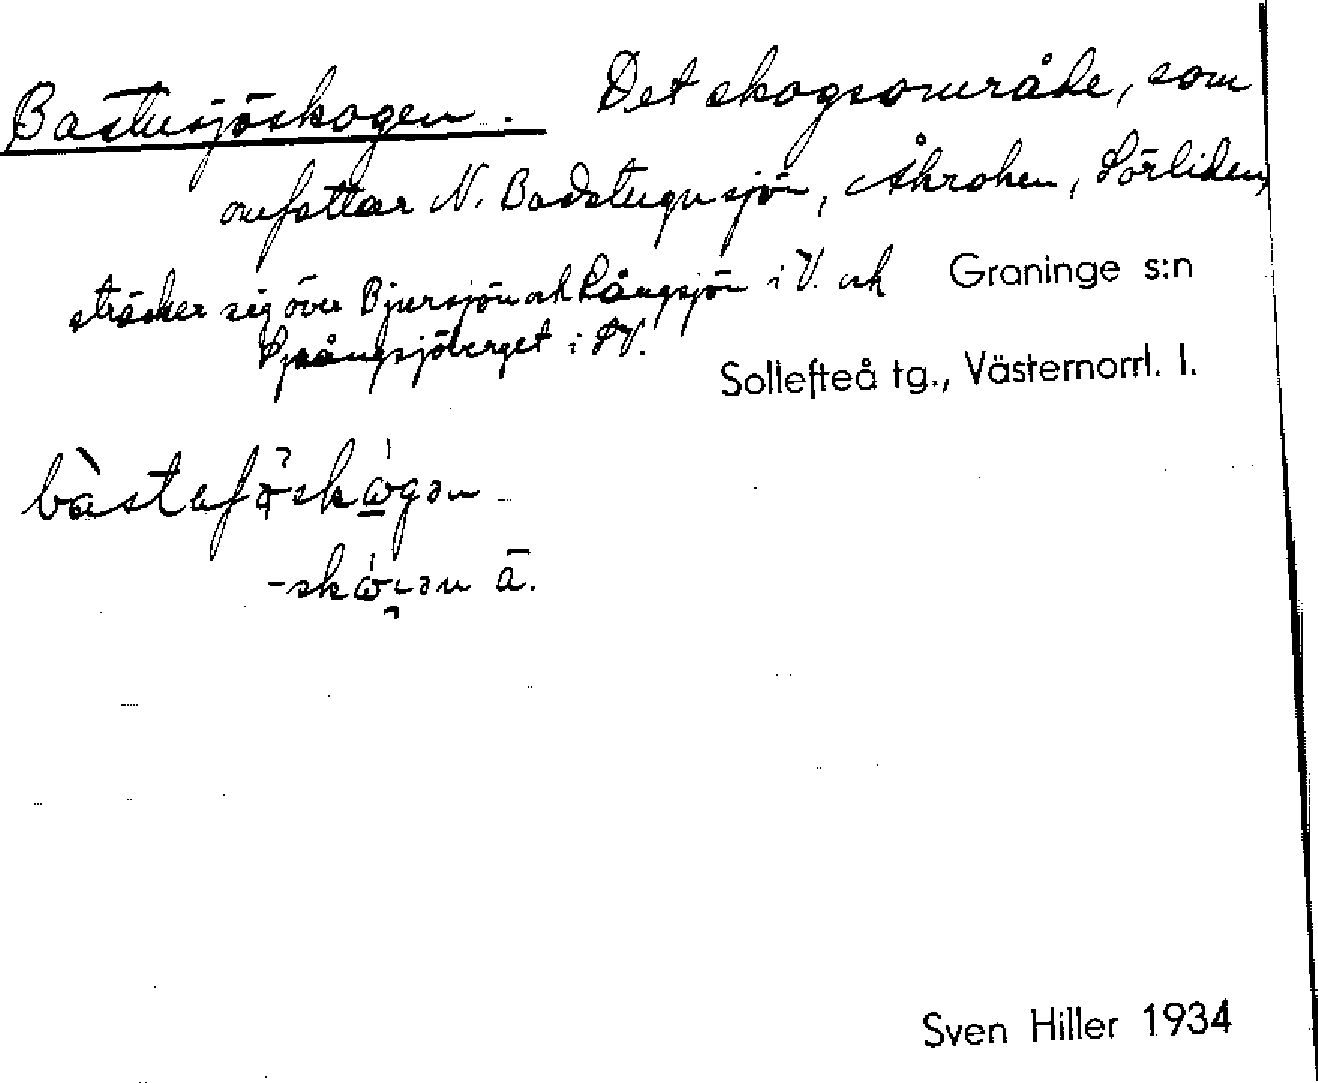 Bastusjöskogen. Det skogsområde, som
omfattar N. Badstugusjön, Åkroken, Sörliden,
sträcker sig över Bjursjön och Långsjön i V. och
Språngsjöberget i SV.
Graninge s:n
Sollefteå tg., Västernorrl. l.
Sven Hiller 1934